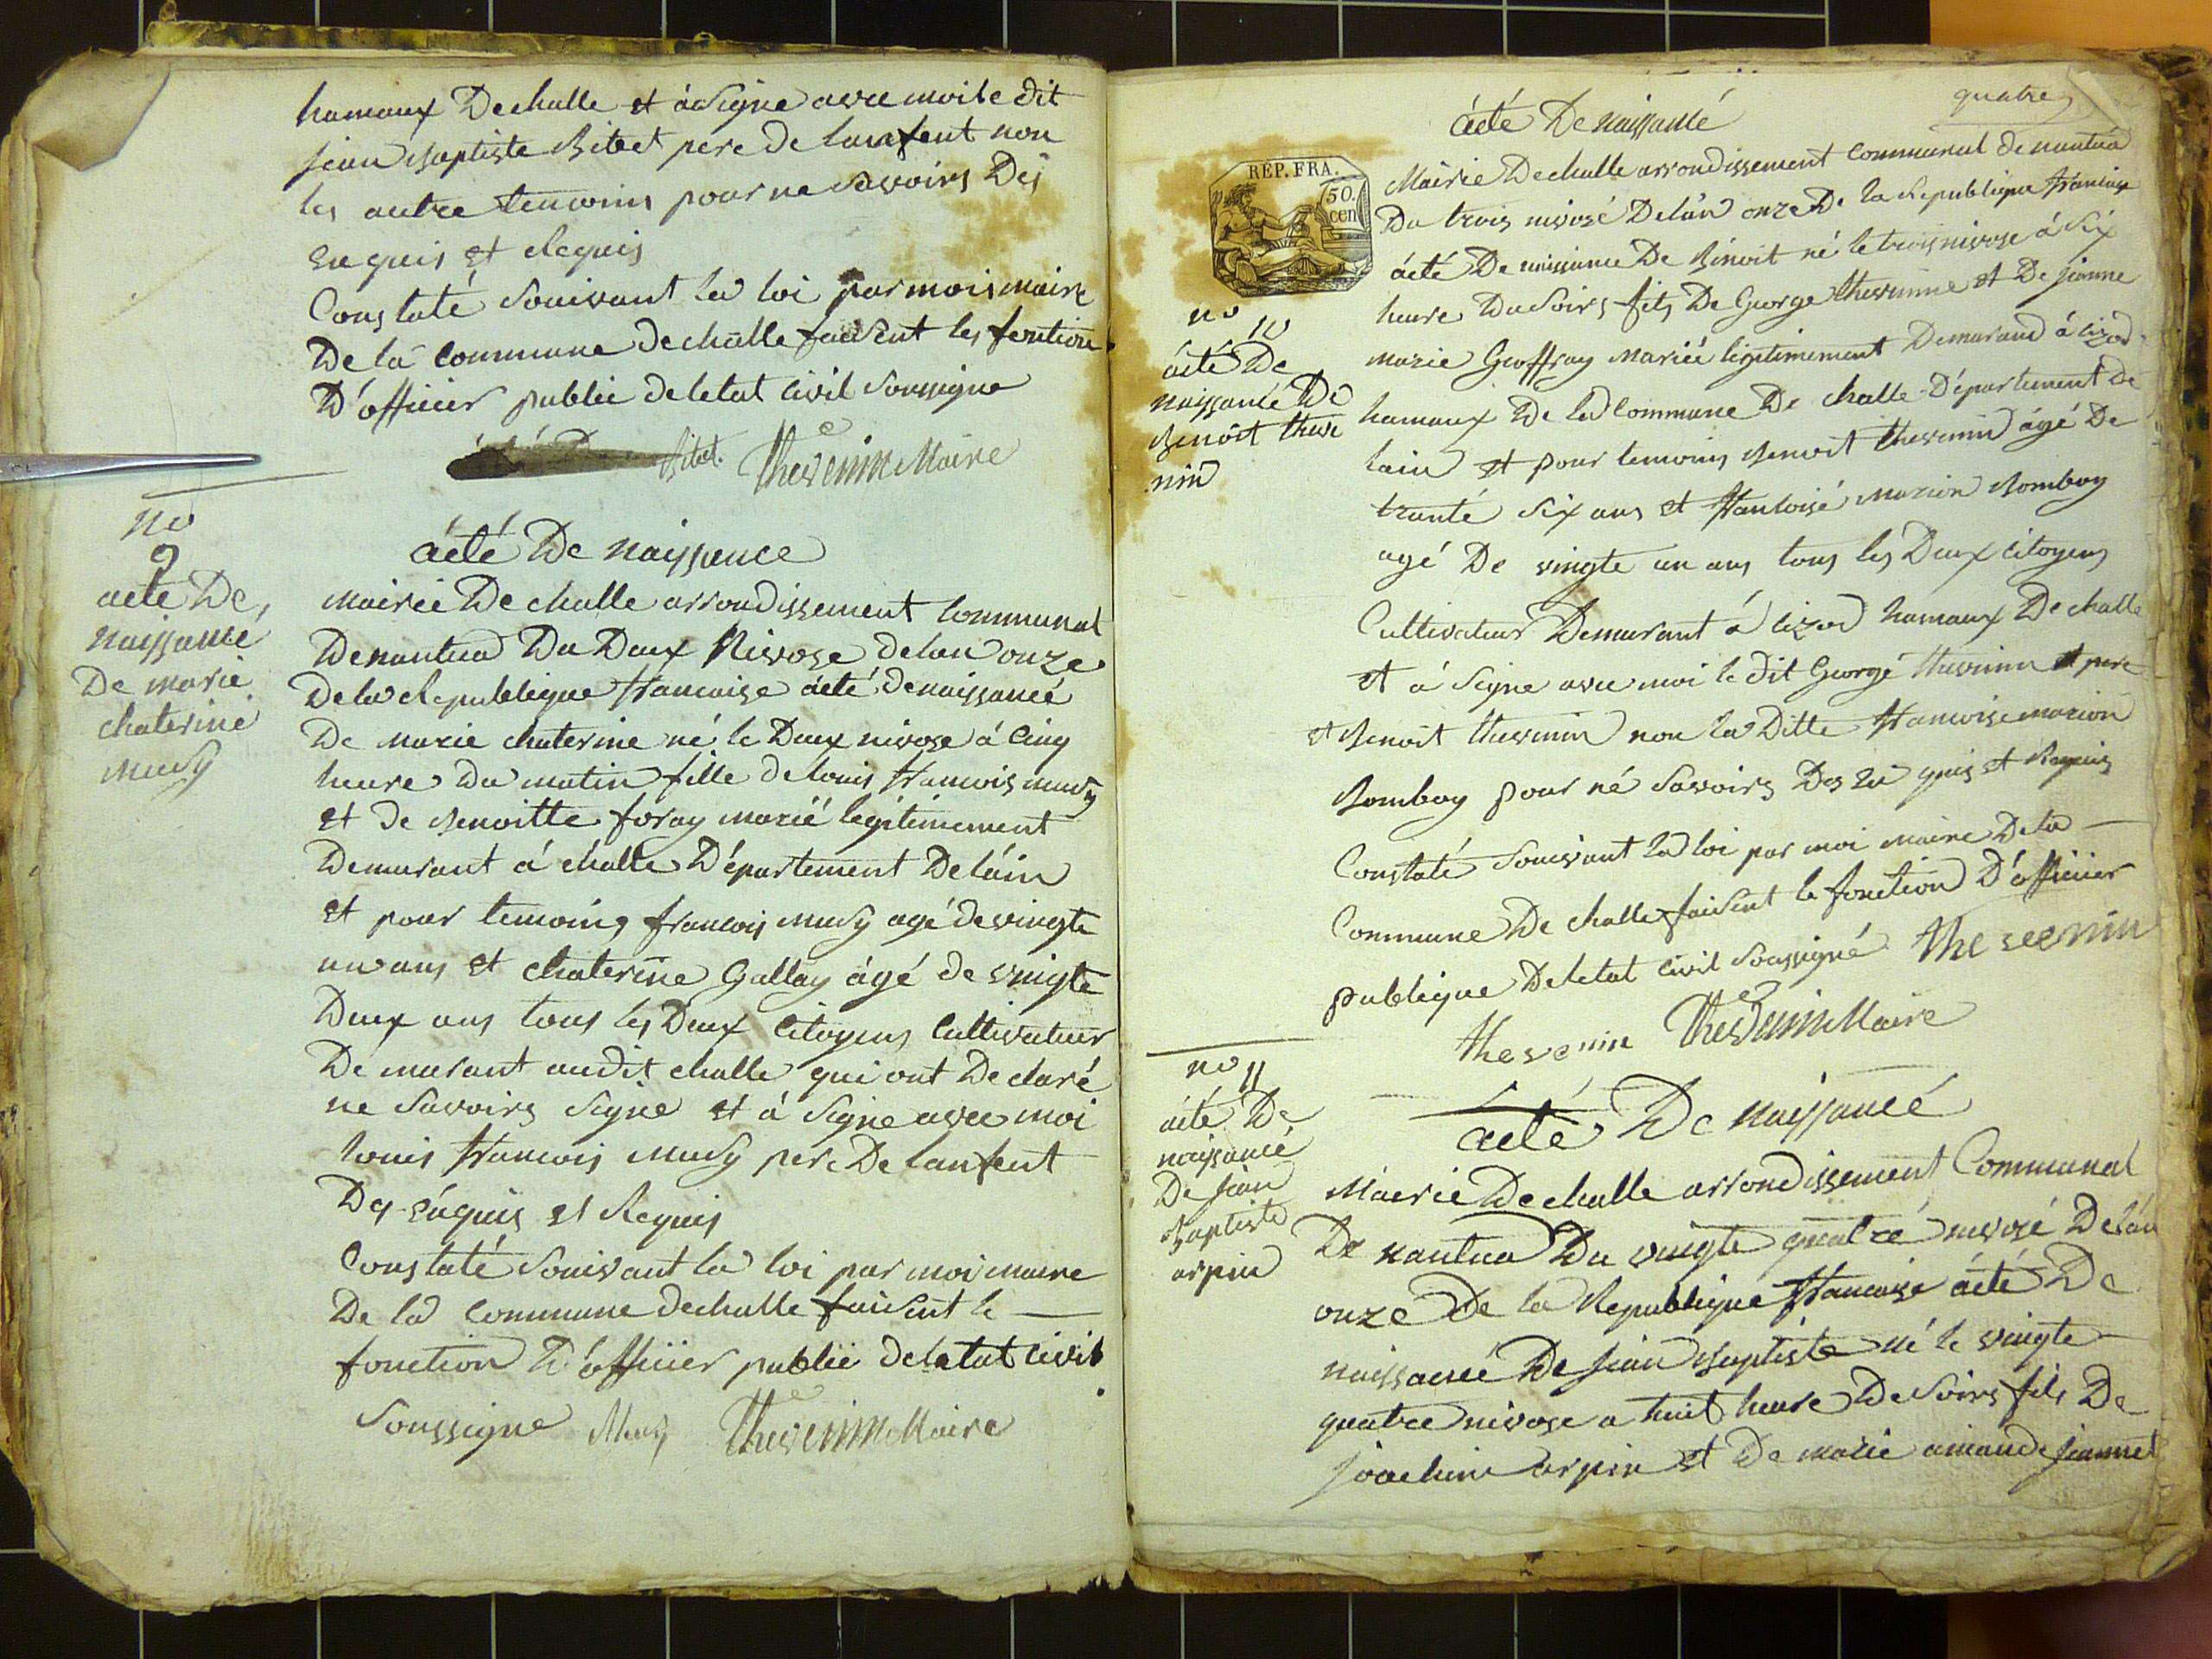 hameaux De challe et à Signe avec moi le dit
jean Baptiste Bitet pere de lanfent non
les autre temoins pour ne Savoirs Des
enquis et Requis
Constaté Souivant la loi par mois maire
De la commune de challe faisent les fontion
D'officier public de letat civil Soussigne
Bitet. Thevenin Maire
no
9
acte De
naissance
De marie
chaterine
musy
acté De naissance
Mairié De challe arrondissement Communal
De nantua Du Deux Nivose de lan onze
De la Republique francaise acté de naissancé
De marie chaterine né le Deux nivose à Cinq
heure du matin fille de louis francois musy
et de Benoitte foray marié legitimement
Demurant à challe Département De láin
et pour temoins francois musy agé de vingte
un ans et chaterine Gallay àgé de vingte
Deux ans tous les Deux Citoyens Cultivateur
De murant audit challe qui ont Declaré
ne Savoirs Signe et à Signe avec moi
louis francois musy pere De lanfent
Des enquis et Requis
Constaté Souivant la loi par moi maire
De la commune de challe faisent le
fonction D'officier public de letat civil
Soussigne Musy Thevenin Maire
quatre
acté De naissancé
REP. FRA.
50.
cen
Mairie De challe arrondissement Communal de nantua
Du trois nivosé De lán onze De la Republique francaise
acté De naissance De Bénoit né le trois nivose à Six
heure Du Soirs fils De George thevenin et De jeanne
marie Geoffray Mariée legitimement Demurand à lizod
hameaux De la Commune De challe Département De
lain et pour temoins Benoit thevenin àgé De
tranté Six ans et francoisé marion Bomboy
agé De vingte un ans tous les Deux Citoyens
Cultivateur Demurant à lizod hameaux De challe
et à Signe avec moi le dit Georgé thevenin pere
et Benoit thevenin non la Ditte francoise marion
Bomboy pour né Savoirs Des en quis et Requis
Constaté Souivant la loi par moi maire De la
Commune De challe faisent le fonction D'officier
publique De letat civil Soussigné the veenin
thevenin Thevenin Maire
no 10
acté De
naissance De
Benoit theve
nin
no 11
acté De
naissancé
De jean
Baptiste
arpin
acté De naissancé
Mairie De challe arrondissement Communal
De nantua Du vingte quatré nivosé De lán
onze De la Republique francaise acté De
naissancé De jean Baptiste né le vingte
quatre nivose a huit heure De Soirs fils De
joachim arpin et De marie amande jeannet